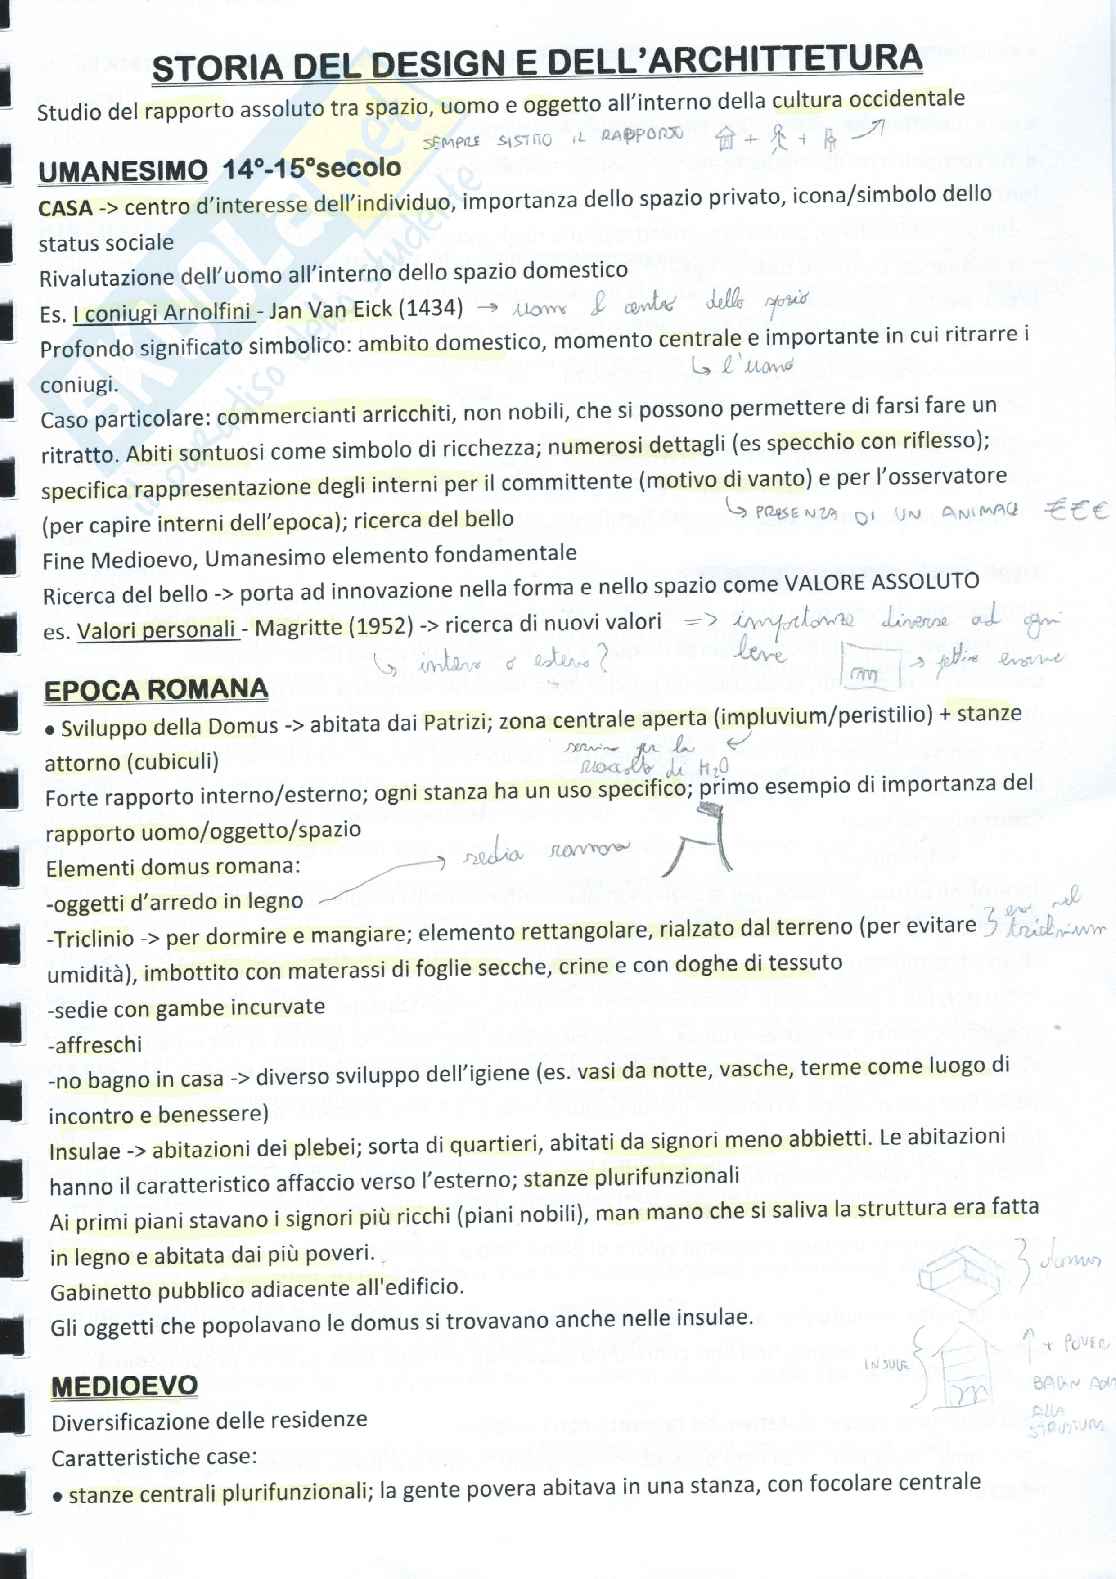 STORIA DEL DESIGN E DELL'ARCHITTETURA
Studio del rapporto assoluto tra spazio, uomo e oggetto all'interno della cultura occidentale
SEMPRE IL RAPPORTO + +
UMANESIMO 14°-15°secolo
CASA -> centro d'interesse dell'individuo, importanza dello spazio privato, icona/simbolo dello
status sociale
Rivalutazione dell'uomo all'interno dello spazio domestico
Es. I coniugi Arnolfini - Jan Van Eick (1434) → uomo è centro dello spazio
Profondo significato simbolico: ambito domestico, momento centrale e importante in cui ritrarre i
↳ l'uomo
coniugi.
Caso particolare: commercianti arricchiti, non nobili, che si possono permettere di farsi fare un
ritratto. Abiti sontuosi come simbolo di ricchezza; numerosi dettagli (es specchio con riflesso);
specifica rappresentazione degli interni per il committente (motivo di vanto) e per l'osservatore
↳ PRESENZA DI UN ANIMALE €€€
(per capire interni dell'epoca); ricerca del bello
Fine Medioevo, Umanesimo elemento fondamentale
Ricerca del bello -> porta ad innovazione nella forma e nello spazio come VALORE ASSOLUTO
es. Valori personali - Magritte (1952) -> ricerca di nuovi valori => importanze diverse ad ogni
↳ interno o esterno? → pettine enorme
EPOCA ROMANA
• Sviluppo della Domus -> abitata dai Patrizi; zona centrale aperta (impluvium/peristilio) + stanze
servino per la
attorno (cubiculi)
raccolta di H2O
Forte rapporto interno/esterno; ogni stanza ha un uso specifico; primo esempio di importanza del
rapporto uomo/oggetto/spazio
Elementi domus romana:
sedia romana
-oggetti d'arredo in legno
-Triclinio -> per dormire e mangiare; elemento rettangolare, rialzato dal terreno (per evitare
3 nel triclinium
umidità), imbottito con materassi di foglie secche, crine e con doghe di tessuto
-sedie con gambe incurvate
-affreschi
-no bagno in casa -> diverso sviluppo dell'igiene (es. vasi da notte, vasche, terme come luogo di
incontro e benessere)
Insulae -> abitazioni dei plebei; sorta di quartieri, abitati da signori meno abbietti. Le abitazioni
hanno il caratteristico affaccio verso l'esterno; stanze plurifunzionali
Ai primi piani stavano i signori più ricchi (piani nobili), man mano che si saliva la struttura era fatta
in legno e abitata dai più poveri.
domus
Gabinetto pubblico adiacente all'edificio.
Gli oggetti che popolavano le domus si trovavano anche nelle insulae.
INSULE
↑ + POVERI
BAGNI
ALLA
STRUTTURA
MEDIOEVO
Diversificazione delle residenze
Caratteristiche case:
• stanze centrali plurifunzionali; la gente povera abitava in una stanza, con focolare centrale
SKUOLA.net
il paradiso dello studente